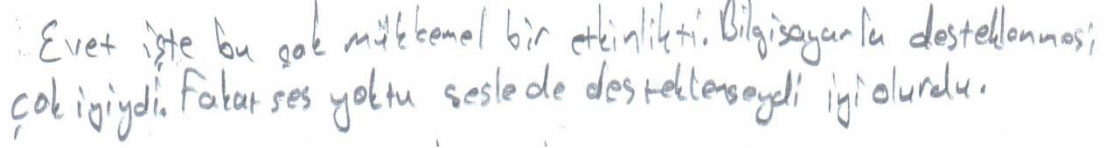 Evet işte bu çok mükkemel bir etkinlikti. Bilgisayarla desteklenmesi
çok iyiydi. Fakat ses yoktu sesle de desteklenseydi iyi olurdu.